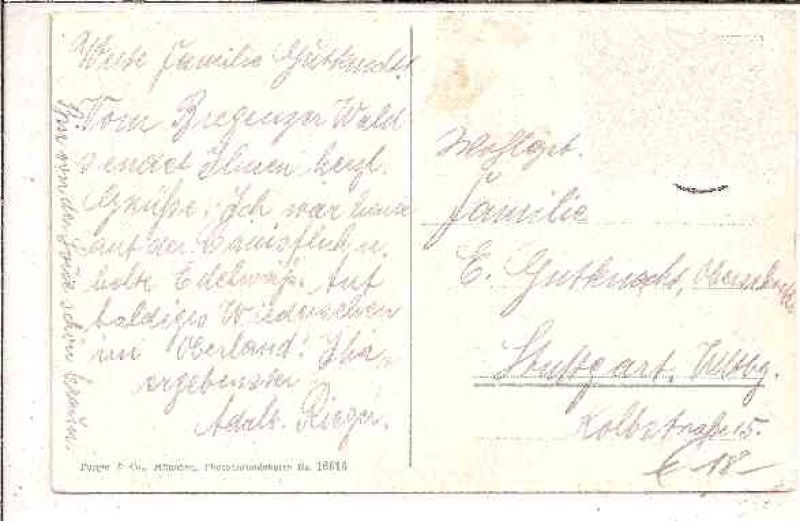 Werte Familie Gutknecht!
Vom Bregenzer Wald
sendet Ihnen herzl.
Grüße. Ich war heute
auf der u.
holte Edelweiß. Auf
baldiges Wiedersehen
im Oberland! Ihr
ergebenster
Adalb. Rieger.
von der schön braun.
Wohlgeb.
Familie
E. Gutknecht,
Stuttgart, Wttbg.
Kolbstraße 15.
€ 18-
& Co., München, No. 16616